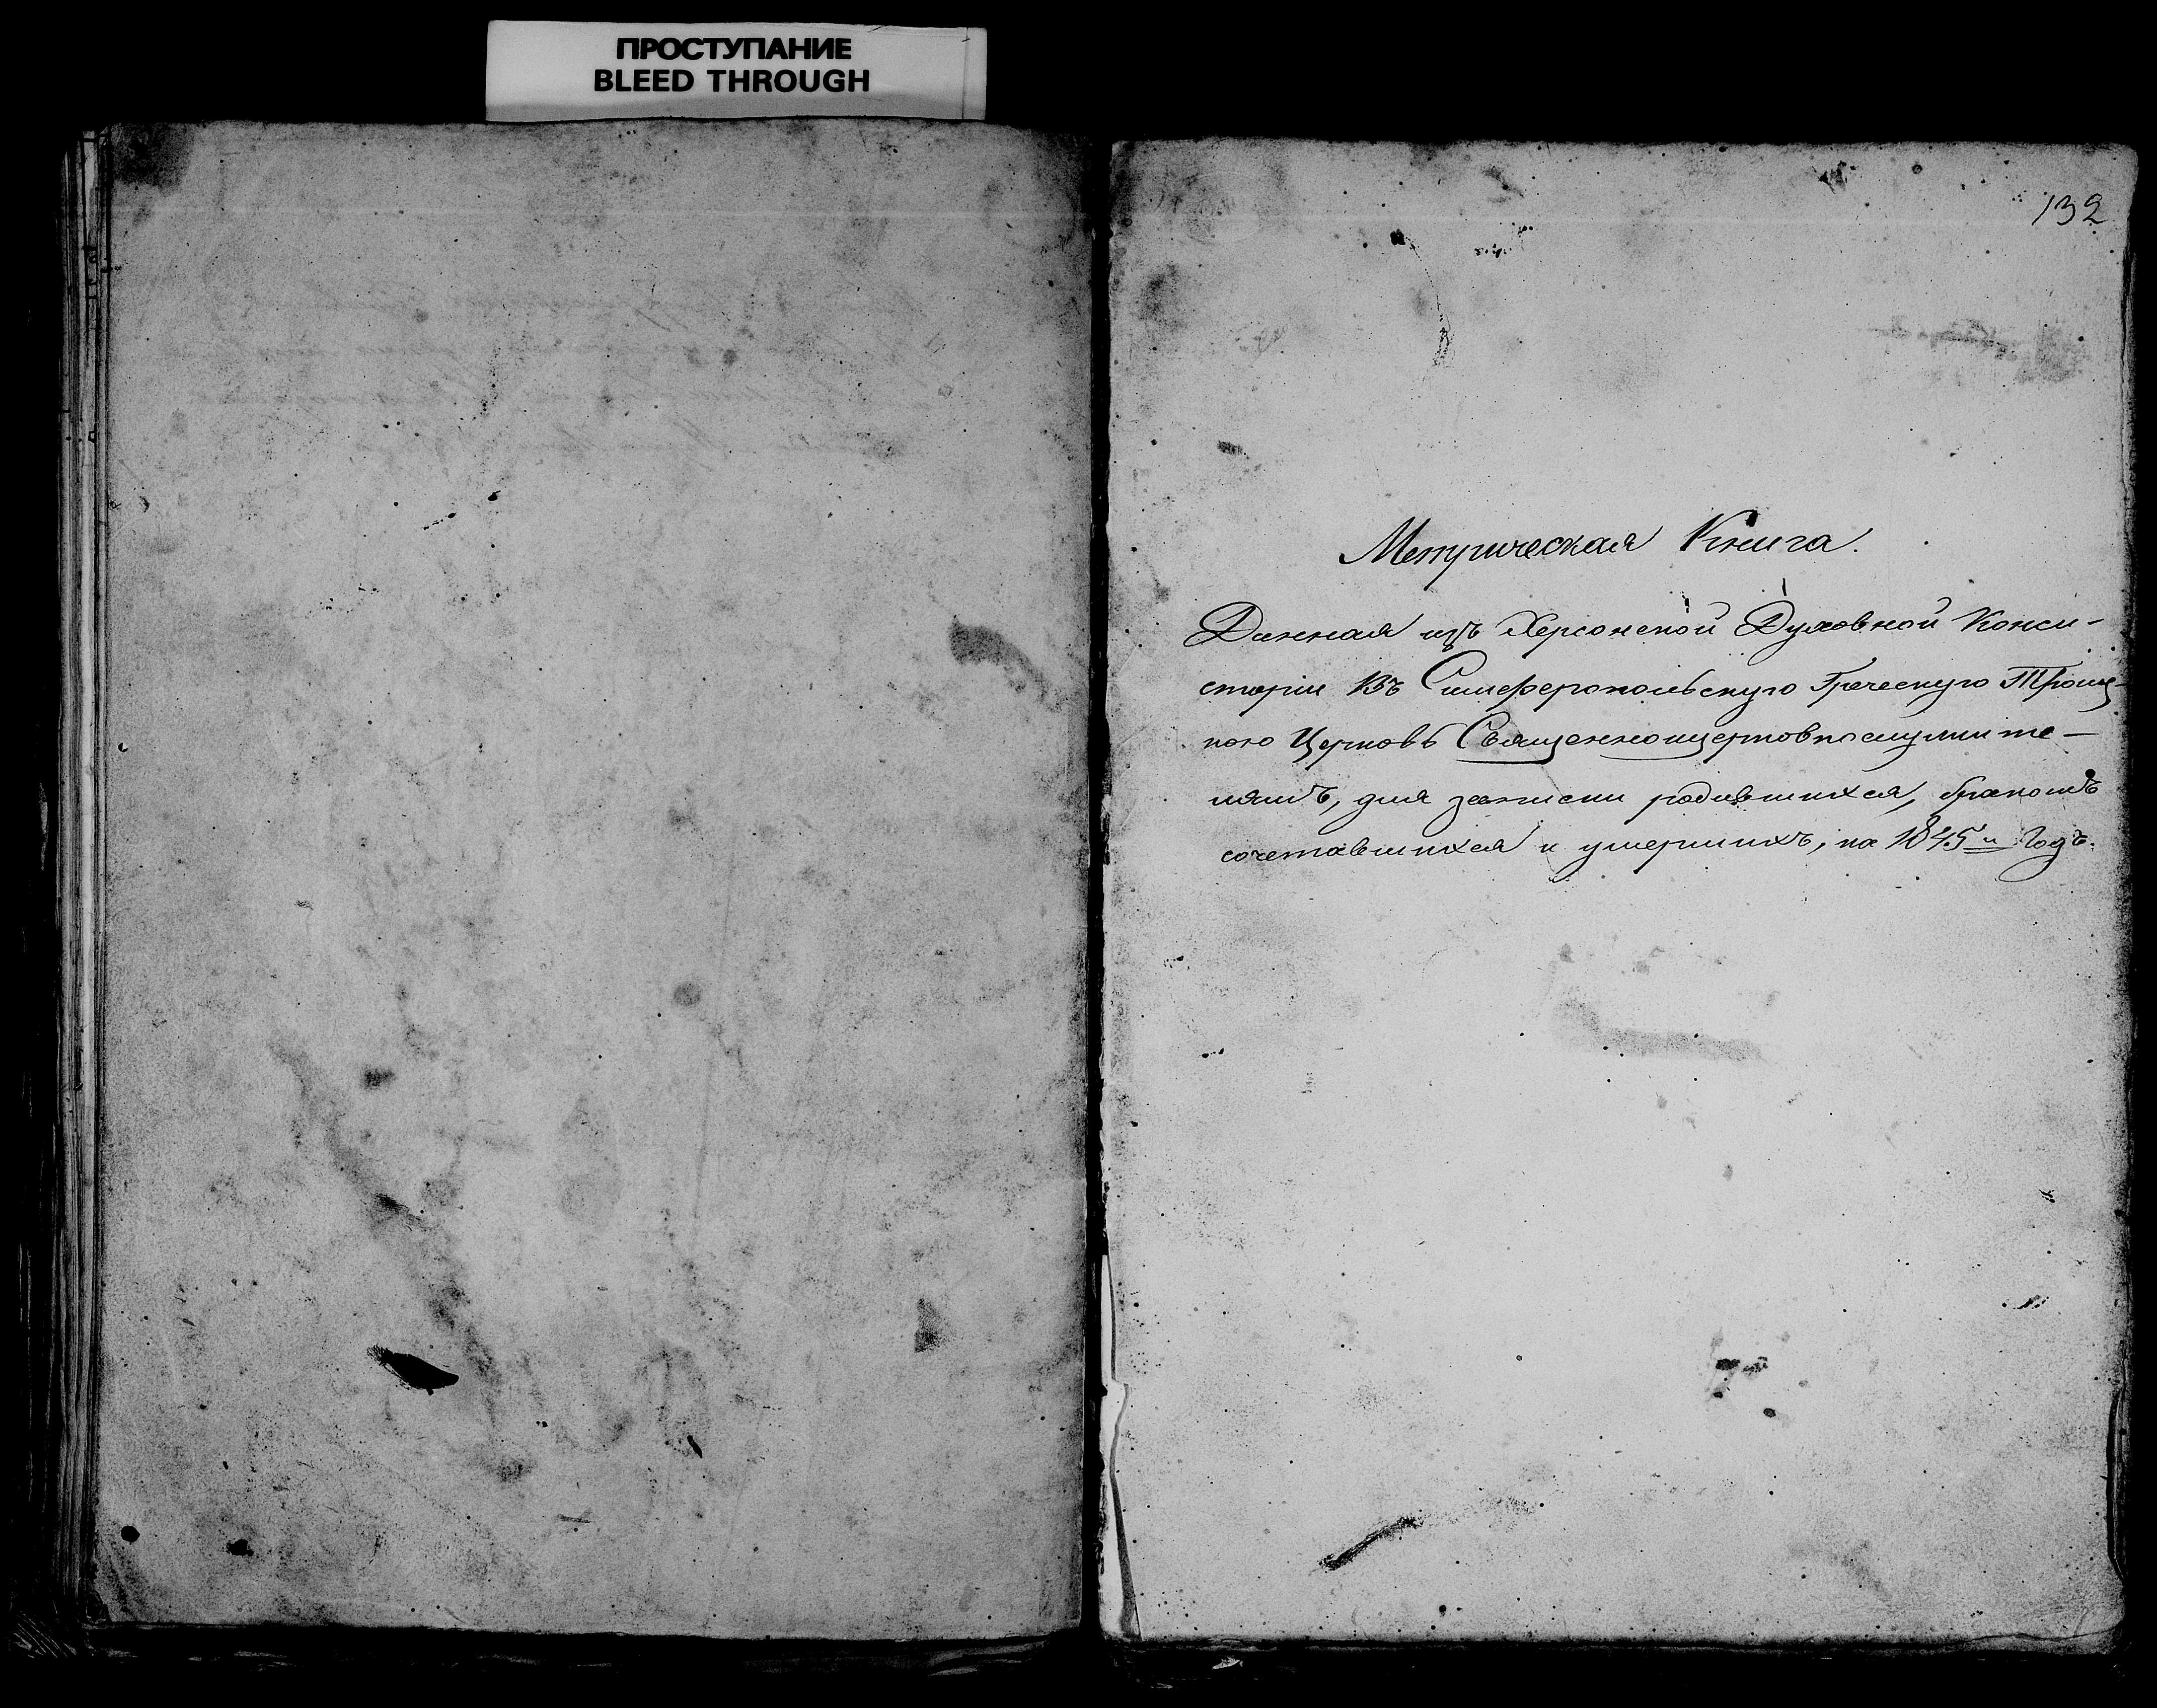 ПРОСТУПАНИЕ
BLEED THROUGH
132
Метрическая Книга.
Данная изъ Херсонской Духовной Конси-
сторіи Въ Симферопольскую Греческую Троиц-
кою Церковь Священноцерковнослужите-
лямъ, для записки родившихся, бракомъ
сочетавшихся и умершихъ, на 1845й Годъ.